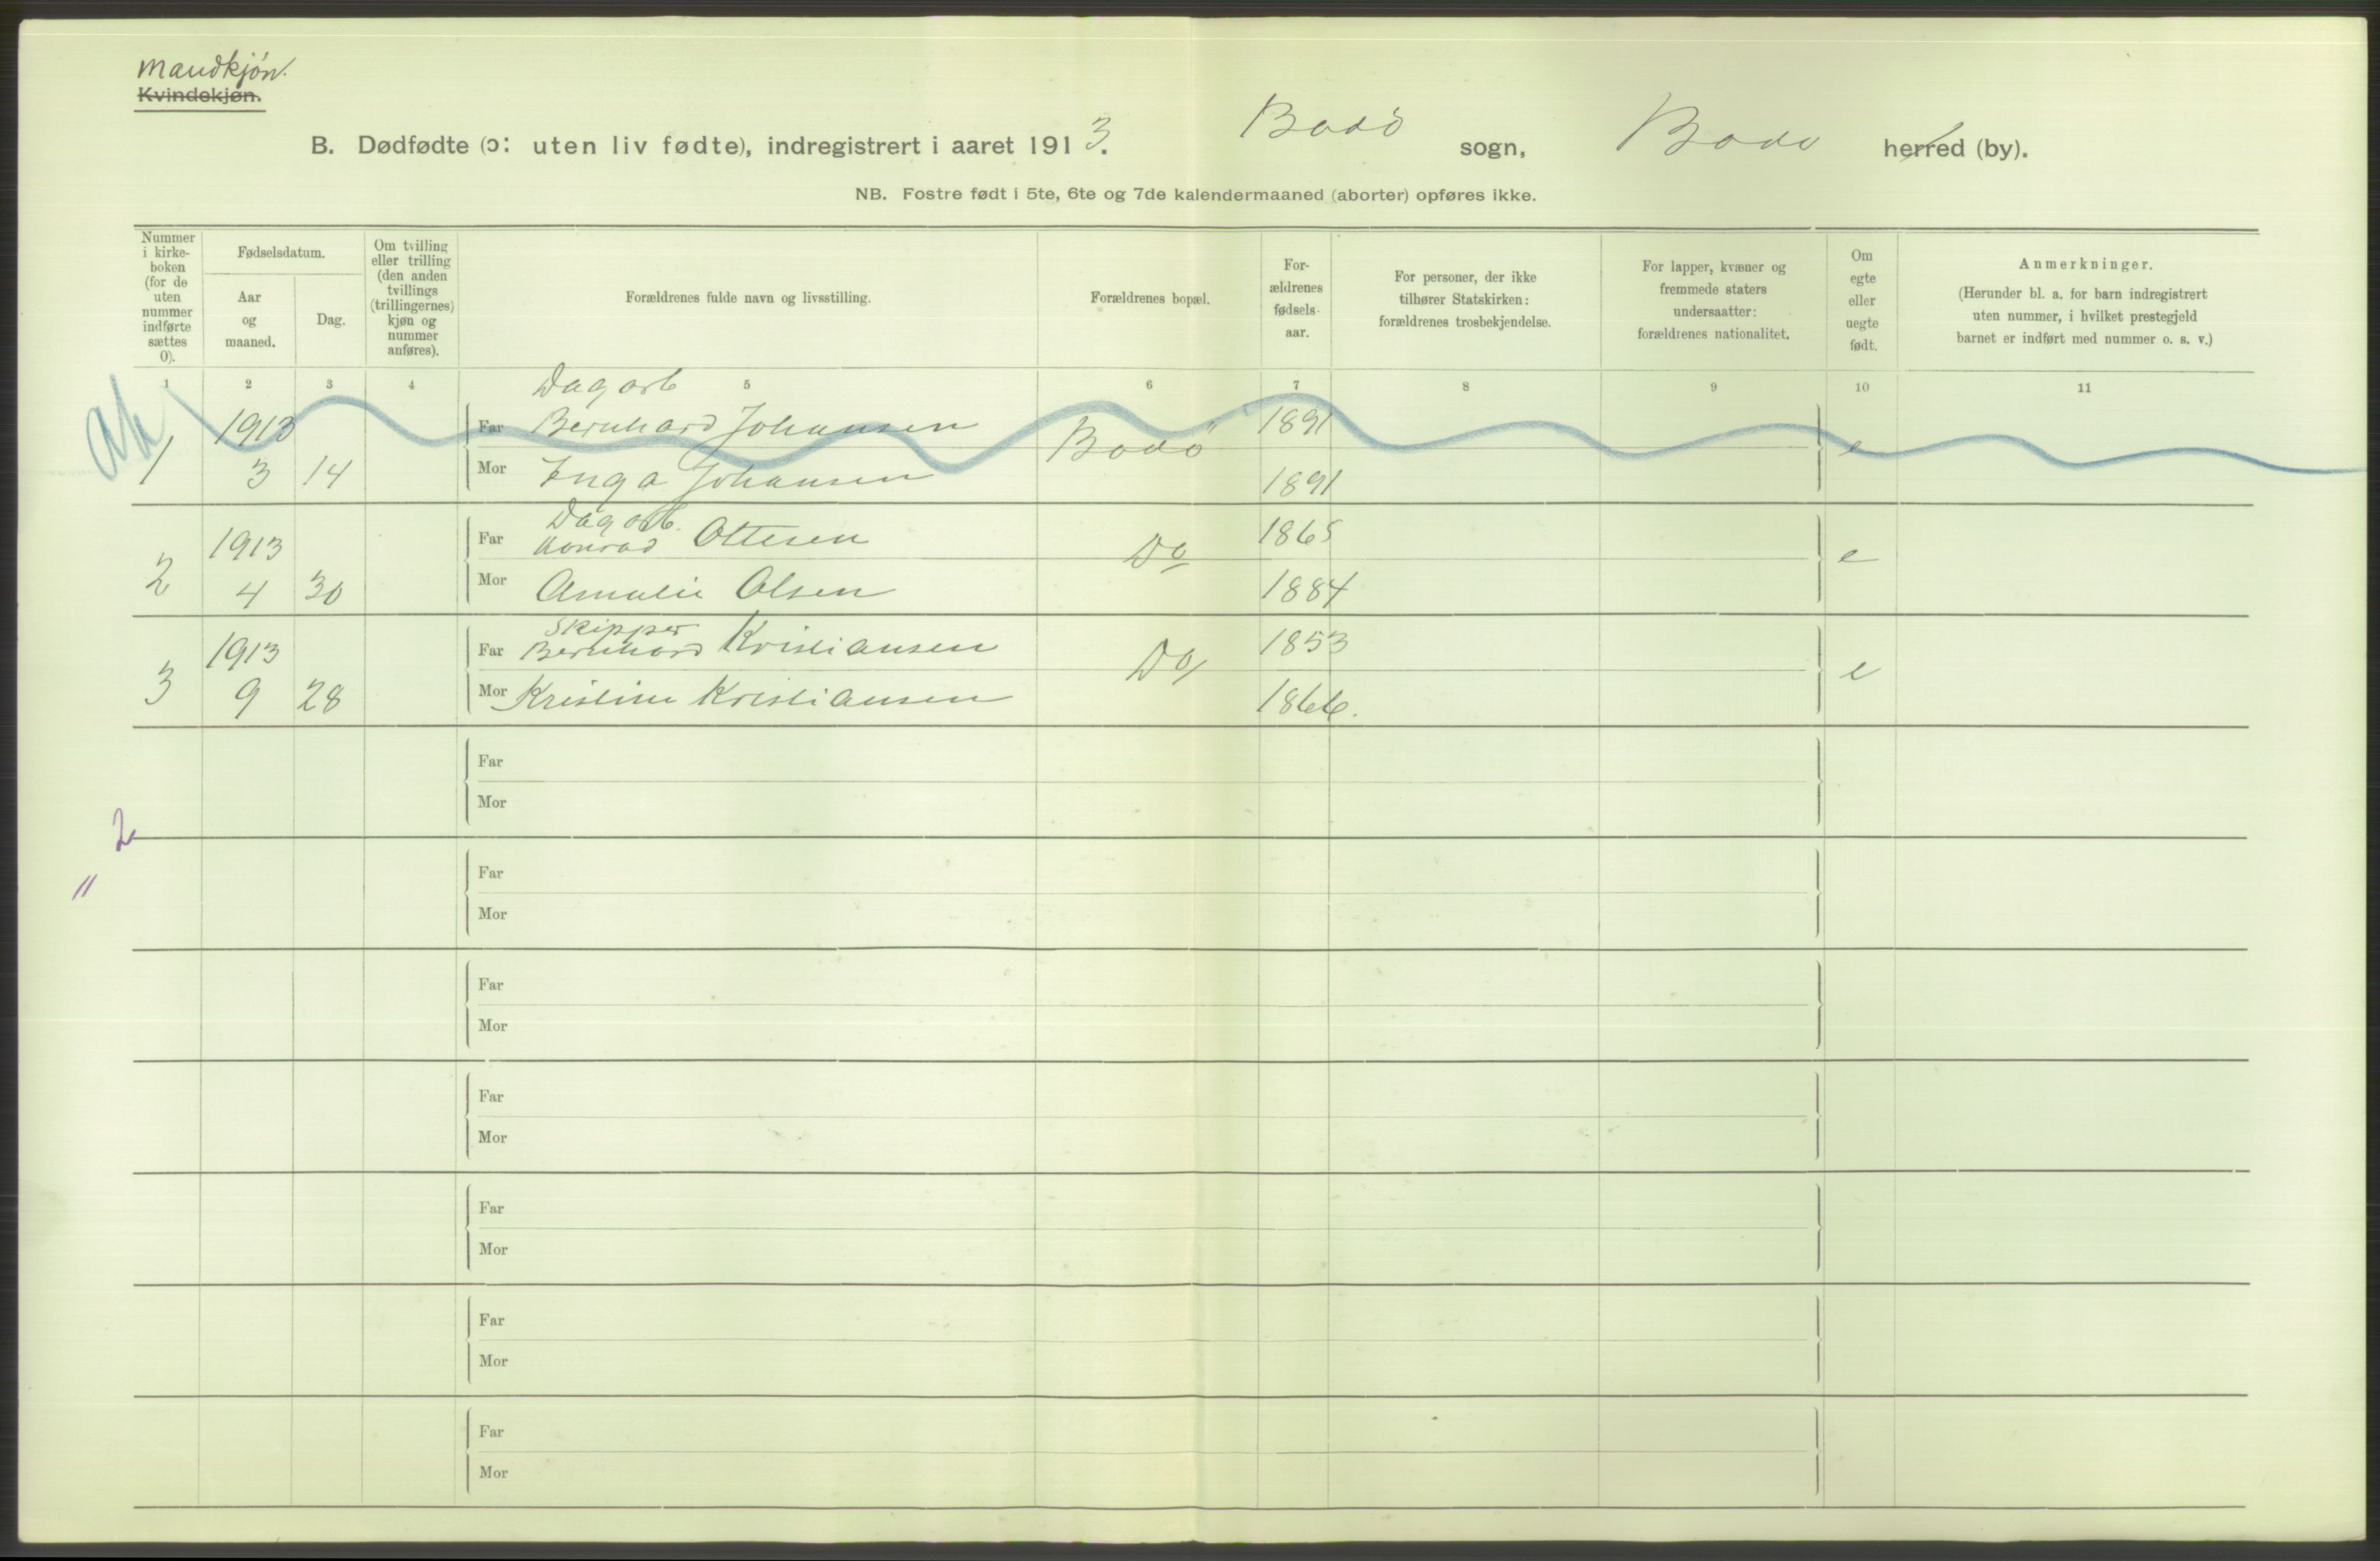 Mandkjøn.
Kvindekjøn.
B. Dødfødte (ɔ: uten liv fødte), indregistrert i aaret 1913. Bodö sogn, Bodø herred (by).
NB. Fostre født i 5te, 6te og 7de kalendermaaned (aborter) opføres ikke.
Nummer
i kirke-
boken
(for de
uten
nummer
indførte
sættes
0).
Fødselsdatum.
Aar
og
maaned.
Dag.
Om tvilling
eller trilling
(den anden
tvillings
(trillingernes)
kjøn og
nummer
anføres).
Forældrenes fulde navn og livsstilling.
Forældrenes bopæl.
For-
ældrenes
fødsels-
aar.
For personer, der ikke
tilhører Statskirken:
forældrenes trosbekjendelse.
For lapper, kvæner og
fremmede staters
undersaatter:
forældrenes nationalitet.
Om
egte
eller
uegte
født.
Anmerkninger.
(Herunder bl. a. for barn indregistrert
uten nummer, i hvilket prestegjeld
barnet er indført med nummer o. s. v.)
1 2 3 4 5 6 7 8 9 10 11
Dagarb
1913 Far Bernhard Johansen Bodö 1891 e
1 3 14 Mor Inga Johansen 1891
Dagarb.
1913 Far Konrad Ottesen Do 1865 e
2 4 30 Mor Amalie Olsen 1884
Skipper
1913 Far Bernhard Kristiansen Do 1853 e
3 9 28 Mor Kristine Kristiansen 1866.
Far
Mor
2
Far
"
Mor
Far
Mor
Far
Mor
Far
Mor
Far
Mor
Far
Mor